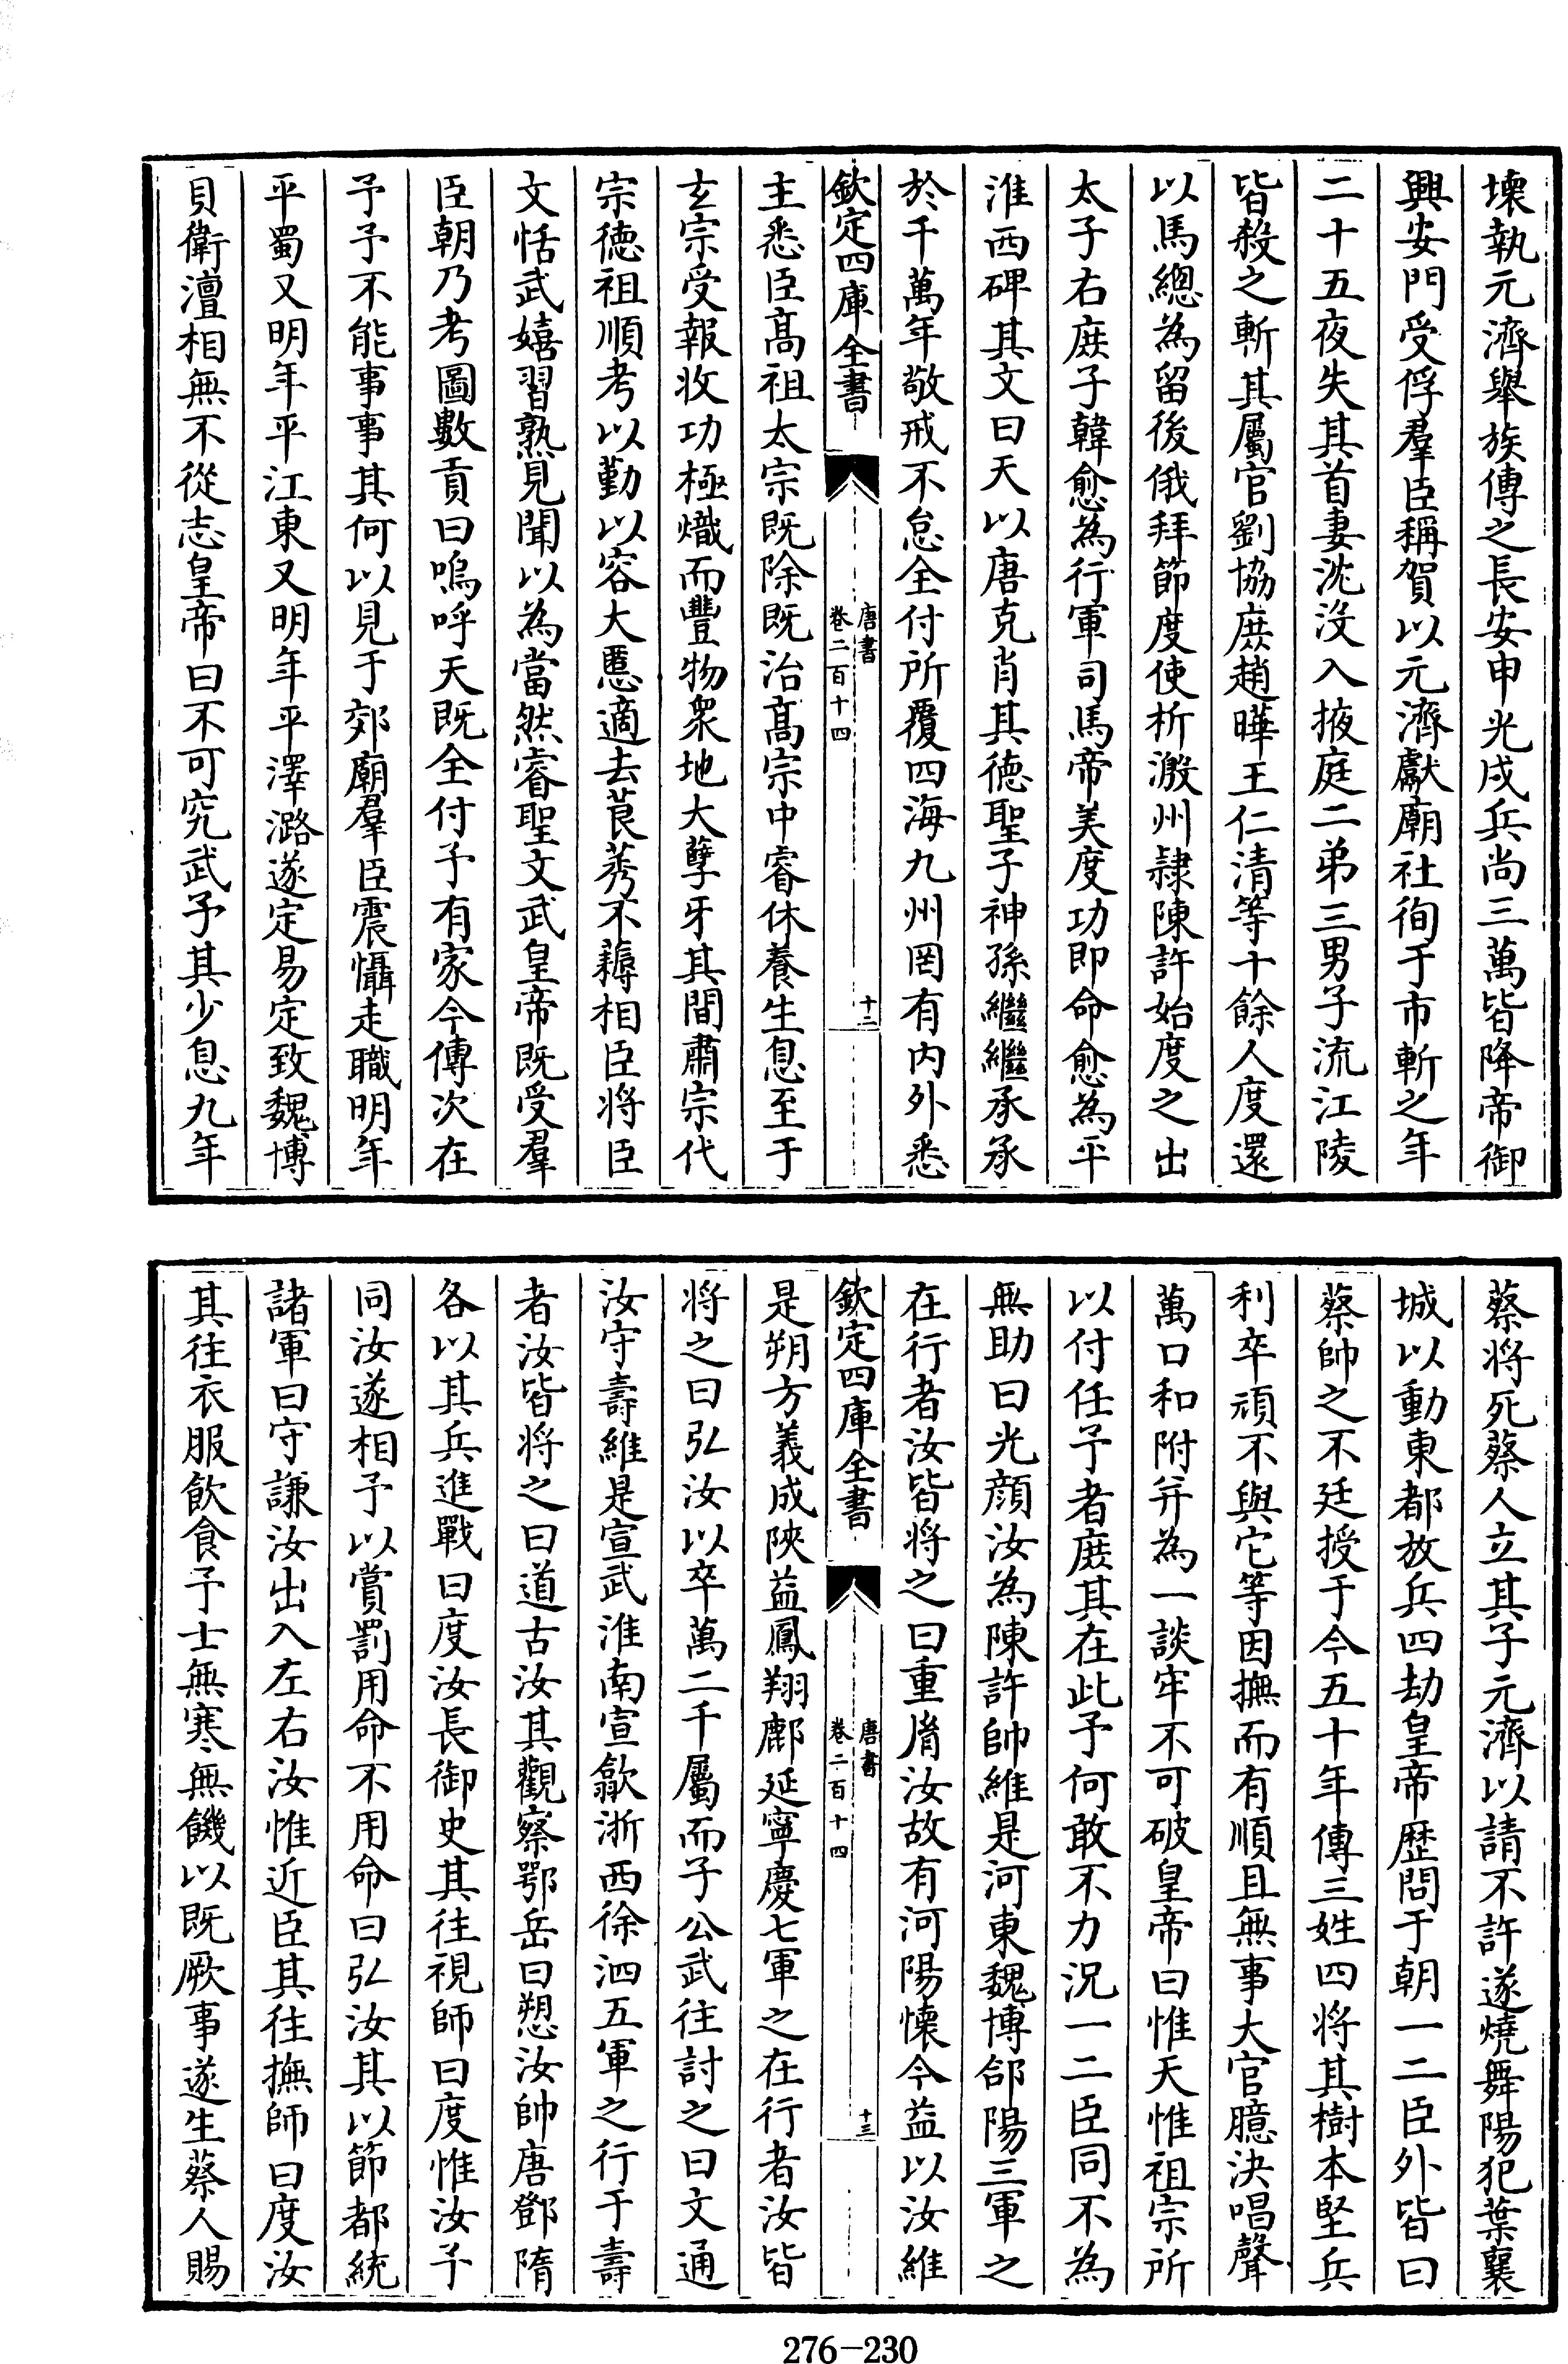 壊執元濟舉族傳之長安申光戍兵尚三萬皆降帝御
興安門受俘羣臣稱賀以元濟獻廟社徇于市斬之年
二十五夜失其首妻沈没入掖庭二弟三男子流江陵
皆殺之斬其屬官劉協庶趙曄王仁清等十餘人度還
以馬總為留後俄拜節度使析溵州隷陳許始度之出
太子右庶子韓愈為行軍司馬帝美度功即命愈為平
淮西碑其文曰天以唐克肖其徳聖子神孫繼繼承承
於千萬年敬戒不怠全付所覆四海九州罔有内外悉
欽定四庫全書
唐書
卷二百十四
十二
主悉臣髙祖太宗既除既治髙宗中睿休養生息至于
玄宗受報收功極熾而豐物衆地大孽牙其間肅宗代
宗徳祖順考以勤以容大慝適去莨莠不薅相臣将臣
文恬武嬉習熟見聞以為當然睿聖文武皇帝既受羣
臣朝乃考圖數貢曰嗚呼天既全付予有家今傳次在
予予不能事事其何以見于郊廟羣臣震懾走職明年
平蜀又明年平江東又明年平澤潞遂定易定致魏博
貝衛澶相無不從志皇帝曰不可究武予其少息九年
蔡将死蔡人立其子元濟以請不許遂燒舞陽犯葉襄
城以動東都放兵四刼皇帝歴問于朝一二臣外皆曰
蔡帥之不廷授于今五十年傳三姓四将其樹本堅兵
利卒頑不與它等因撫而有順且無事大官臆決唱聲
萬口和附并為一談牢不可破皇帝曰惟天惟祖宗所
以付任予者庶其在此予何敢不力況一二臣同不為
無助曰光顔汝為陳許帥維是河東魏博郃陽三軍之
在行者汝皆将之曰重𦙍汝故有河陽懷今益以汝維
欽定四庫全書
唐書
卷二百十四
十三
是朔方義成陜益鳳翔鄜延寧慶七軍之在行者汝皆
将之曰弘汝以卒萬二千屬而子公武往討之曰文通
汝守壽維是宣武淮南宣歙浙西徐泗五軍之行于壽
者汝皆将之曰道古汝其觀察鄂岳曰愬汝帥唐鄧隋
各以其兵進戰曰度汝長御史其往視師曰度惟汝予
同汝遂相予以賞罰用命不用命曰弘汝其以節都統
諸軍曰守謙汝出入左右汝惟近臣其往撫師曰度汝
其往衣服飲食予士無寒無饑以既厥事遂生蔡人賜
276-230